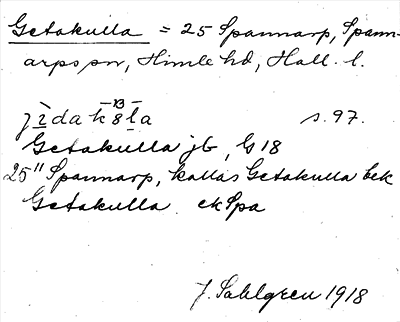 Getakulla = 25 Spannarp, Spann-
arps sn, Himle hd, Hall. l.
s. 97.
Getakulla jb, G18
25" Spannarp, kallas Getakulla bek
Getakulla ekSpa
J. Sahlgren 1918